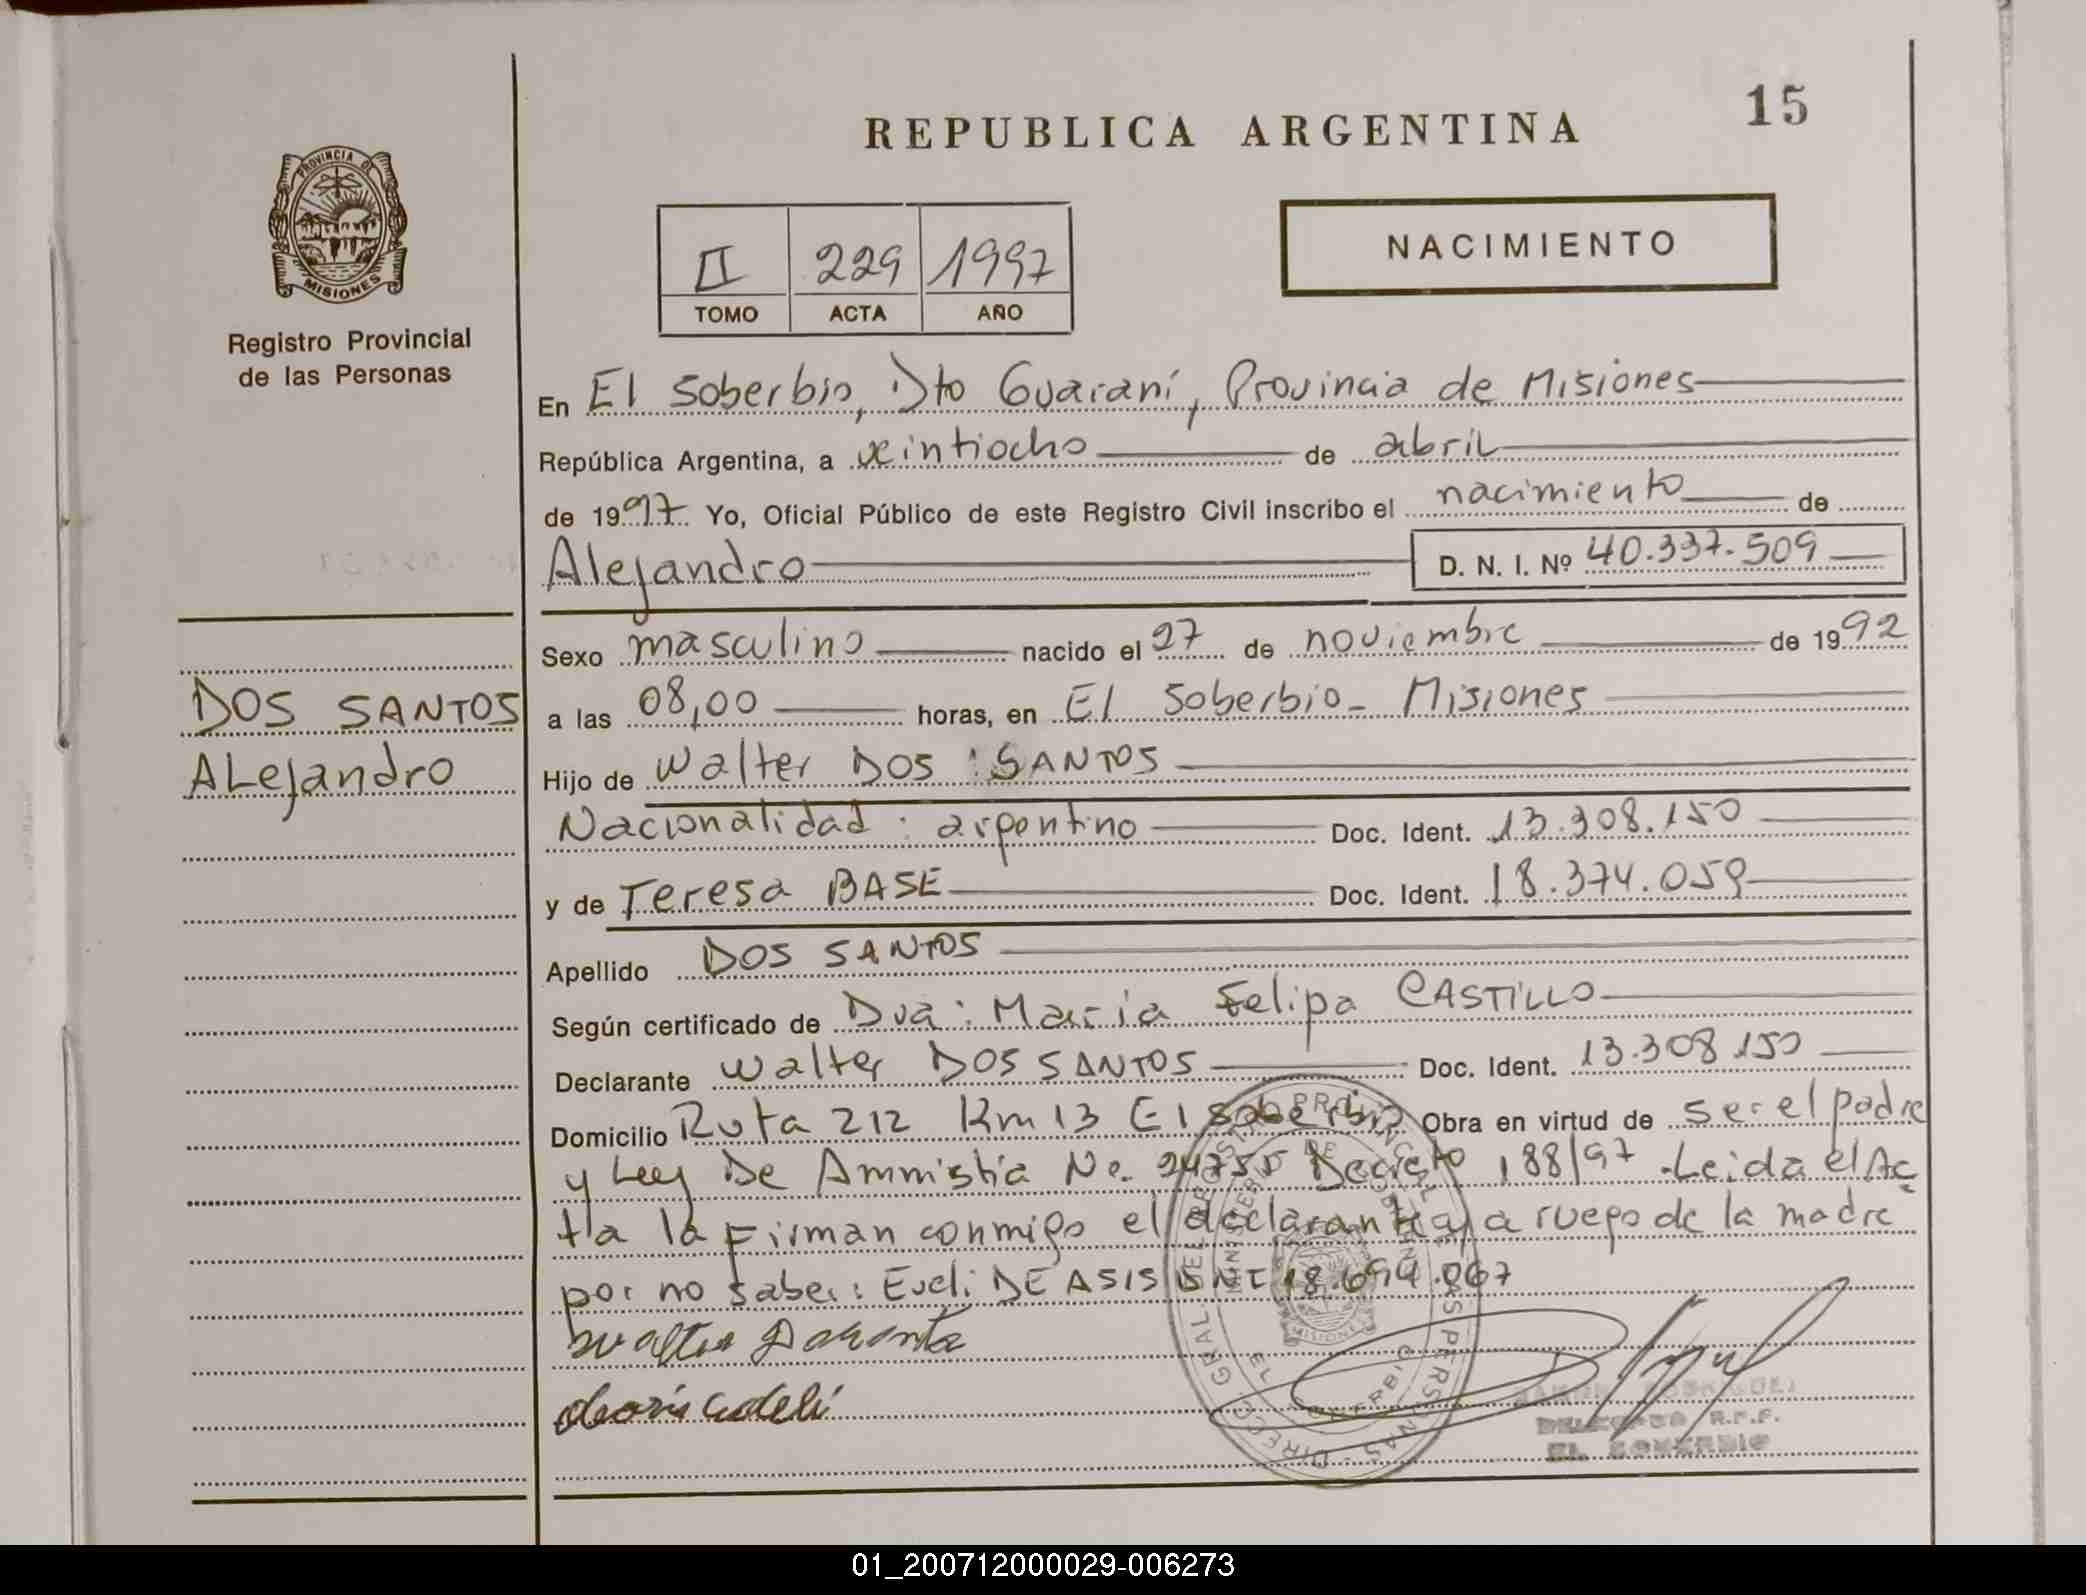 15
REPUBLICA ARGENTINA
PROVINCIA DE
MISIONES
Registro Provincial
de las Personas
NACIMIENTO
II 229 1997
TOMO ACTA AÑO
En El Soberbio, Dto Guaraní, Provincia de Misiones
República Argentina, a veintiocho de abril
de 1997. Yo, Oficial Público de este Registro Civil inscribo el nacimiento de
Alejandro D. N. I. Nº 40.337.509
Sexo masculino nacido el 27 de noviembre de 1992
DOS SANTOS
Alejandro
a las 08,00 horas, en El Soberbio - Misiones
Hijo de Walter DOS SANTOS
Nacionalidad: argentino Doc. Ident. 13.308.150
y de Teresa BASE Doc. Ident. 18.374.059
Apellido DOS SANTOS
Según certificado de Dva: Maria Felipa CASTILLO
Declarante Walter DOS SANTOS Doc. Ident. 13.308.150
Domicilio Ruta 212 Km 13 El Soberbio Obra en virtud de ser el padre
y Ley De Amnistia No. 24755 Decreto 188/97. Leida el Ac
ta la Firman conmigo el declarante y a ruego de la madre
por no saber: Eveli DE ASIS DNI 18.694.067
DELEGADA R.P.P.
EL SOBERBIO
01_200712000029-006273